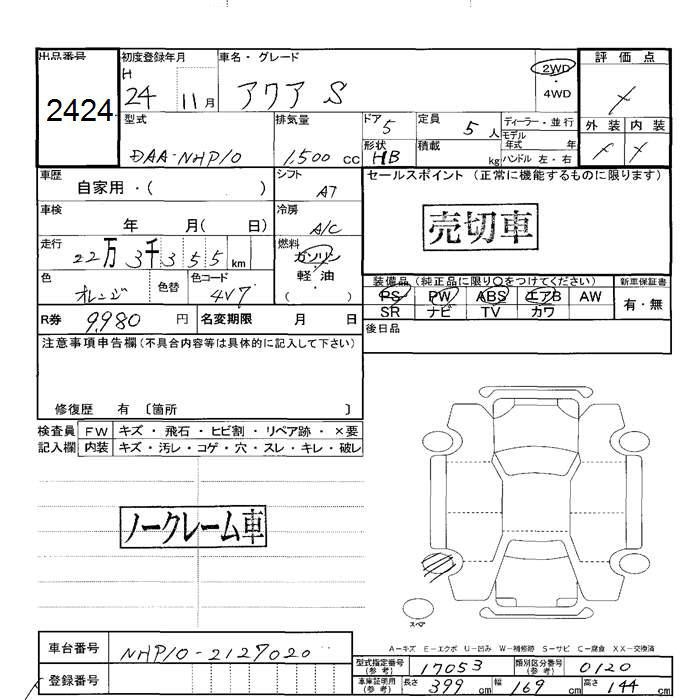 出品番号 初度登録年月 車名・グレード 2WD ・ 4WD 評価点
2424 H 24 11月 アクア S
外装 内装
型式 DAA-NHP10 排気量 1,500 cc ドア 5 定員 5 人 ディーラー・並行
形状 HB 積載 kg モデル年式 年
ハンドル 左・右
車歴 自家用・( ) シフト A7 セールスポイント (正常に機能するものに限ります)
車検 年 月( 日) 冷房 A/C 売切車
走行 22万 3千 3 5 5 km 燃料 ガソリン 軽油 ( )
色 オレンジ 色替 色コード 4V7
装備品 (純正品に限り○をつけてください) 新車保証書
PS PW ABS エアB AW 有・無
SR ナビ TV カワ
R券 9,980 円 名変期限 月 日 後日品
注意事項申告欄(不具合内容等は具体的に記入して下さい)
修復歴 有 〔箇所 〕
検査員 FW キズ・飛石・ヒビ割・リペア跡・×要
記入欄 内装 キズ・汚レ・コゲ・穴・スレ・キレ・破レ
ノークレーム車
スペア
A-キズ E-エクボ U-凹み W-補修跡 S-サビ C-腐食 XX-交換済
車台番号 NHP10-2127020
型式指定番号(参考) 17053 類別区分番号(参考) 0120
登録番号
車庫証明用(参考) 長さ 399 cm 幅 169 cm 高さ 144 cm